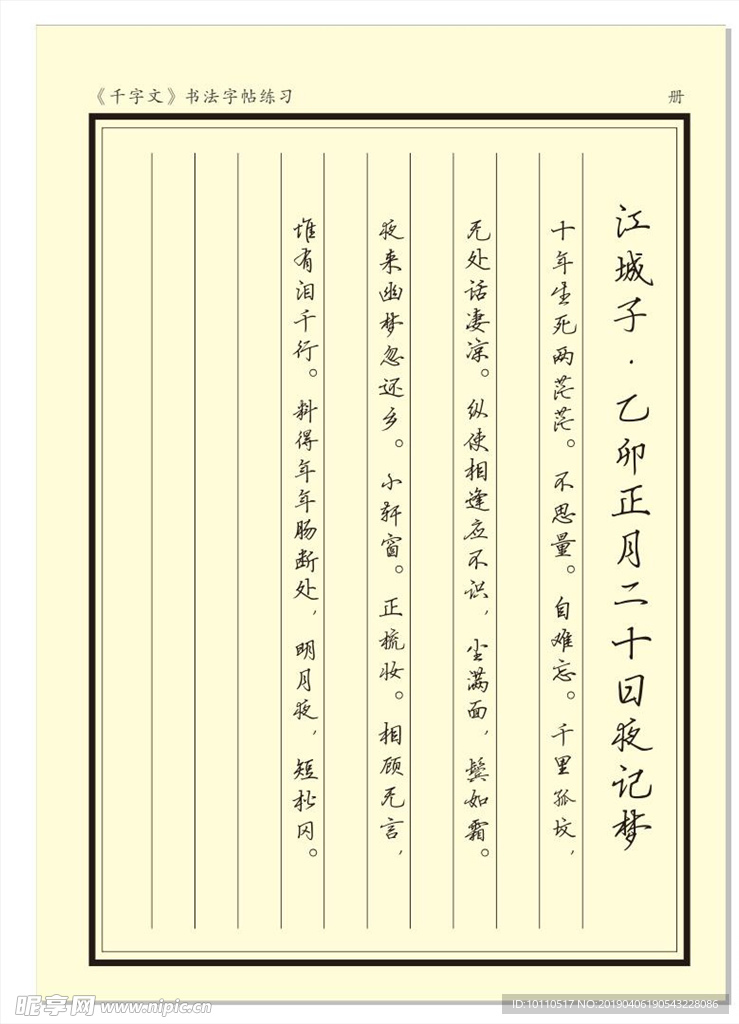 《千字文》书法字帖练习
册
江城子·乙卯正月二十日夜记梦
十年生死两茫茫。不思量。自难忘。千里孤坟，
无处话凄凉。纵使相逢应不识，尘满面，鬓如霜。
夜来幽梦忽还乡。小轩窗。正梳妆。相顾无言，
惟有泪千行。料得年年肠断处，明月夜，短松冈。
昵享网 www.nipic.cn
ID:10110517 NO:20190406190543228086